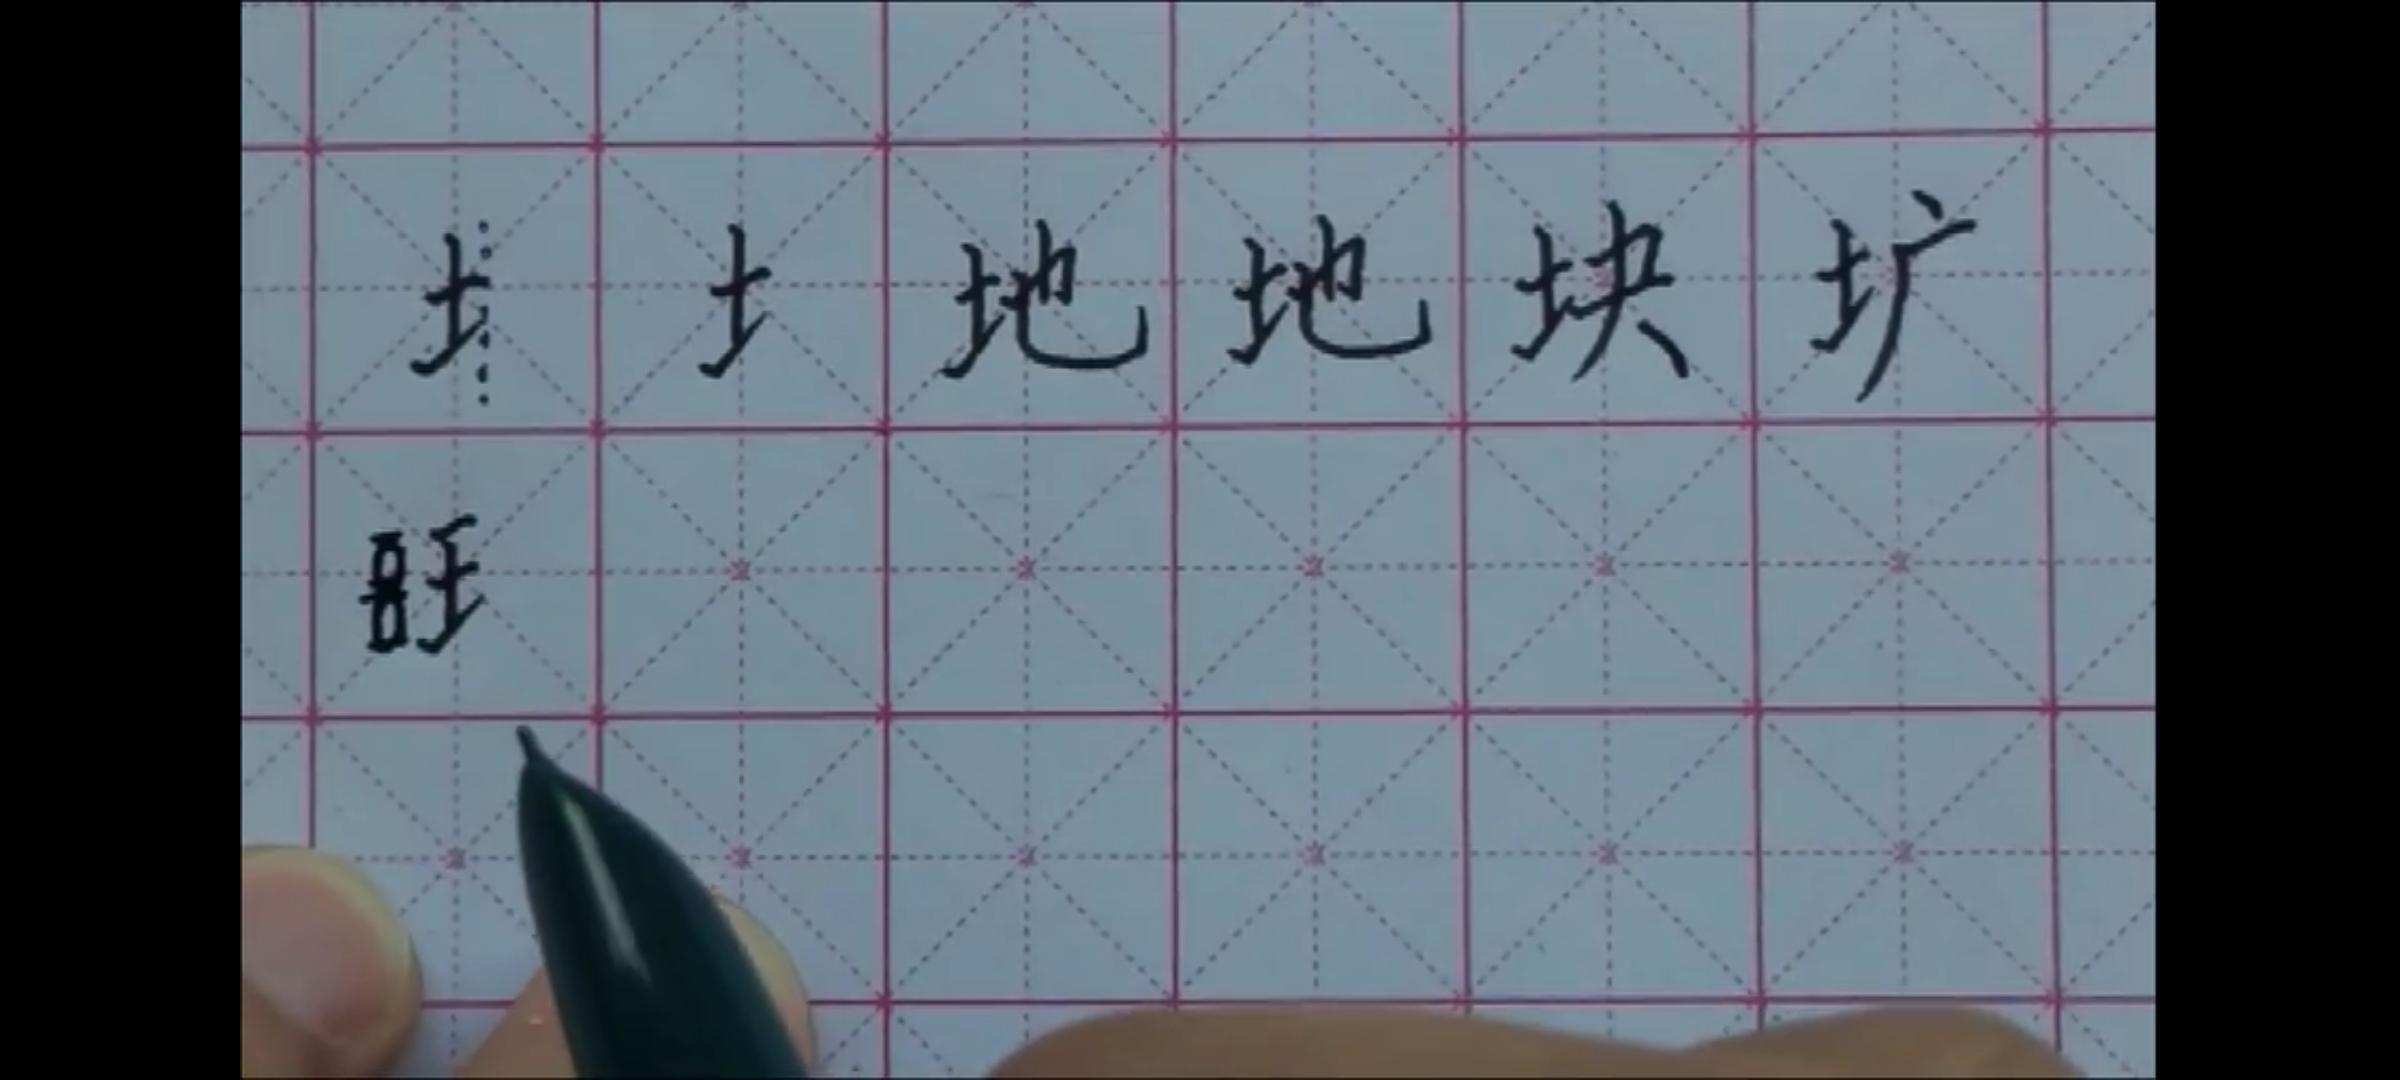 土 土 地 地 块 圹
王